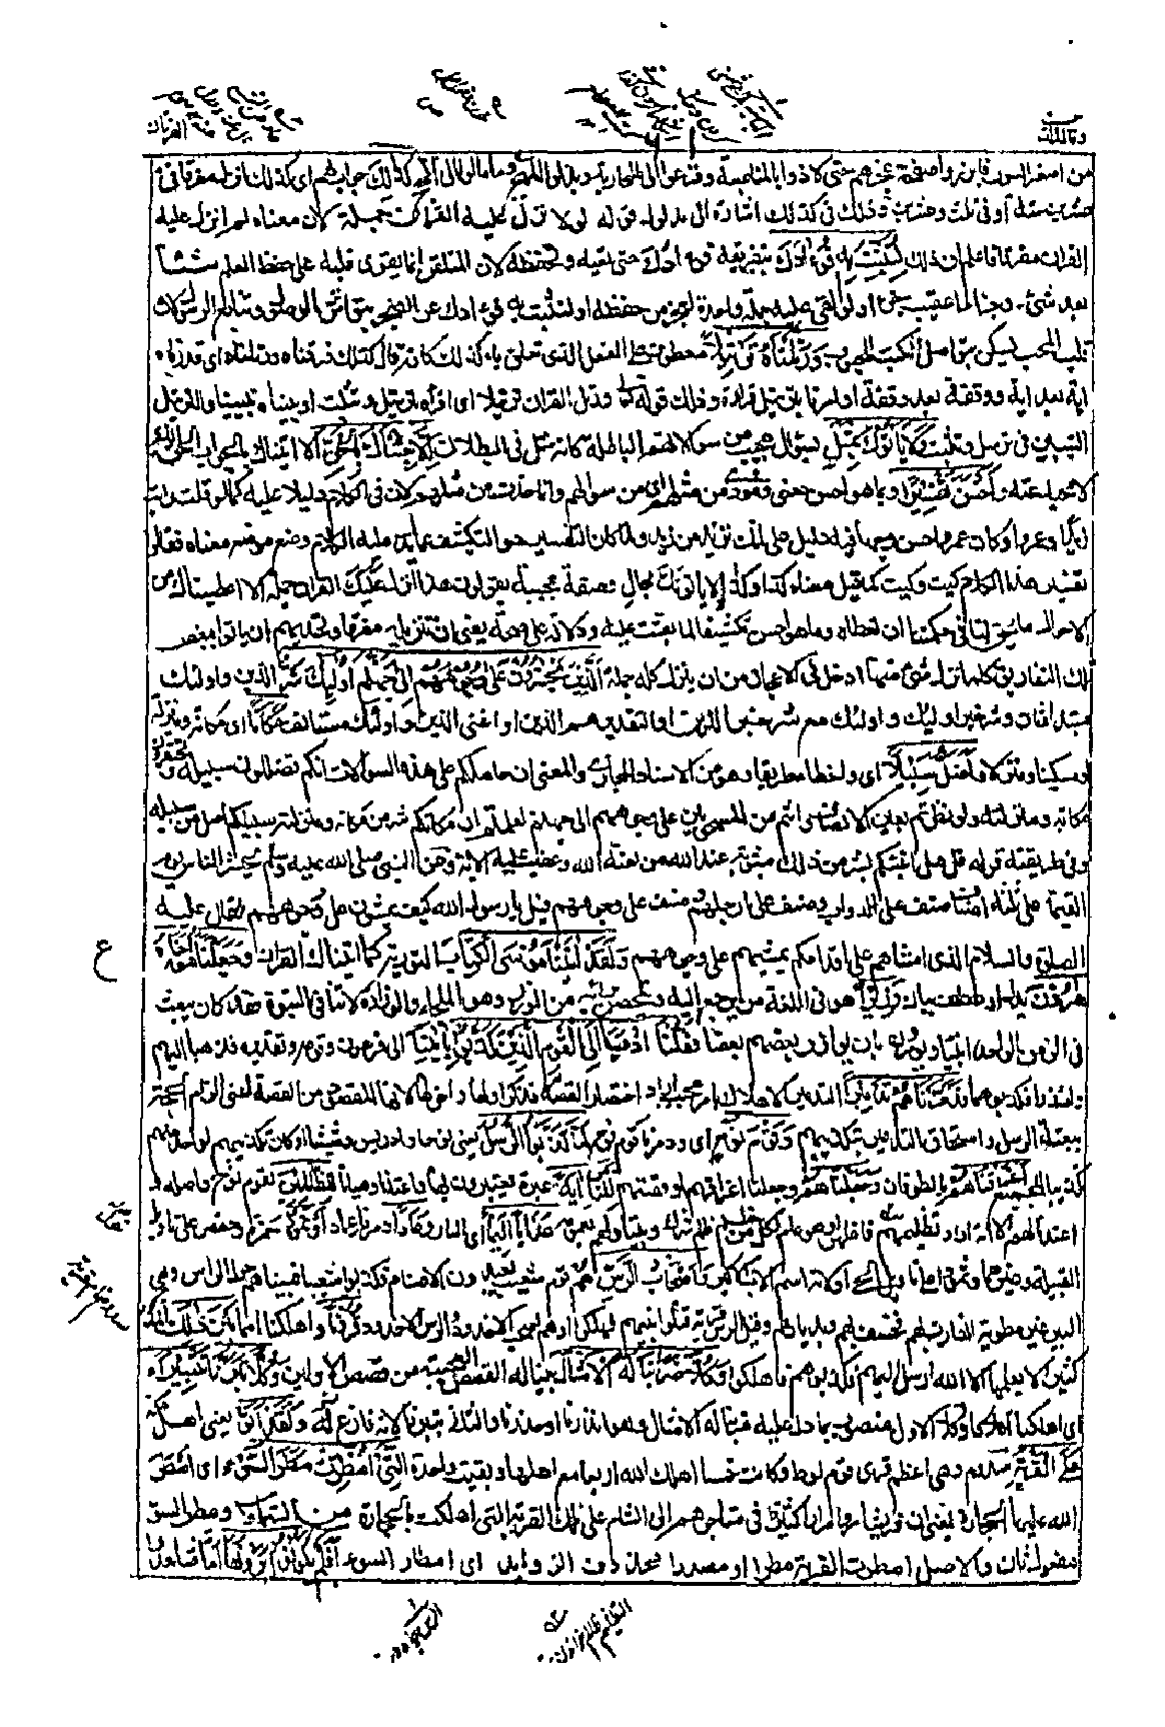 وقال الذين
الفرقان
من اصغر السور فابرزوا صفحة عجزهم حتى لاذوا بالمناصبة وفزعوا الى المحاربة وبذلوا المهج وما مالوا الى الحجج كذلك جواب لهم اى كذلك انزل مفرقا فى
عشرين سنة او فى ثلث وعشرين وذلك فى كذلك اشارة الى مدلول قوله لولا نزل عليه القرآن جملة لان معناه لم انزل عليه
القران مفرقا فاعلم ان ذلك لنثبت به فؤادك بتفريقه فؤادك حتى تعيه وتحفظه لان المتلقن انما يقوى قلبه على حفظ العلم شيئا
بعد شئ وجزأ عقيب جزء ولو القى عليه جملة واحدة لعجز من حفظه او لنثبت به فؤادك عن الضجر بتواتر الوصول وتتابع الرسول لان
قلب المحب يسكن بتواصل كتب المحبوب ورتلناه ترتيلا معطوف على الفعل الذى تعلق به كذلك كانه قال كذلك فرقناه ورتلناه اى قدرناه
اية بعد اية ووقفة بعد وقفة او امرنا بترتيل قراءته وذلك قوله تعالى ورتل القران ترتيلا اى اقرأه بترتيل وتثبت او بيناه تبيينا والترتيل
التبيين فى ترسل وتثبت ولا يأتونك بمثل بسؤال عجيب من سؤالاتهم الباطلة كانه مثل فى البطلان الا جئناك بالحق الا اتيناك بالجواب الحق الذى
لا محيد عنه واحسن تفسيرا وبما هو احسن معنى ومؤدى من مثلهم اى من سؤالهم وانما حذف من مثلهم لان فى الكلام دليلا عليه كما لو قلت رايت
زيدا وعمرا وكان عمرو احسن وجها فيه دليل على انك تريد من زيد ولما كان التفسير هو التكشيف عما يدل عليه الكلام وضع موضع معناه فقالوا
تفسير هذا الكلام كيت وكيت كما قيل معناه كذا وكذا ولا يأتونك بحال وصفة عجيبة يقولون هلا انزل عليك القران جملة الا اعطيناك من
الاحوال ما يحق لك فى حكمتنا ان تعطاه وما هو احسن تكشيفا لما بعثت عليه ودلالة على صحته يعنى ان تنزيله مفرقا وتحديهم ان ياتوا ببعض
تلك التفاريق كلما نزل شئ منها ادخل فى الاعجاز من ان ينزل كله جملة الذين يحشرون على وجوههم الى جهنم اولئك شر الذين واولئك
مبتدا ثان وشر خبر اولئك واولئك مع شر خبر الذين او التقدير هم الذين او اعنى الذين واولئك مستانف مكانا اى مكانة ومنزلة
او مسكنا ومنزلا واضل سبيلا اى واخطا طريقا وهو من الاسناد المجازى والمعنى ان حاملكم على هذه السؤالات انكم تضللون سبيله وتحتقرون
مكانه ومنزلته ولو نظرتم بعين الانصاف وانتم من المسحوبين على وجوههم الى جهنم لعلمتم ان مكانكم شر من مكانه ومنزلته وسبيلكم اضل من سبيله
وفى طريقته قوله قل هل انبئكم بشر من ذلك مثوبة عند الله من لعنه الله وغضب عليه الاية وعن النبى صلى الله عليه وسلم يحشر الناس يوم
القيمة على ثلثة اصناف صنف على الدواب وصنف على ارجلهم وصنف على وجوههم قيل يا رسول الله كيف يمشون على وجوههم فقال عليه
الصلوة والسلام الذى امشاهم على اقدامهم يمشيهم على وجوههم ولقد اتينا موسى الكتاب التورية كما اتيناك القران وجعلنا معه اخاه
هرون بدل او عطف بيان وزيرا هو فى اللغة من يرجع اليه ويتحصن برأيه من الوزر وهو الملجا والوزارة لا تنافى النبوة فقد كان يبعث
فى الزمن الواحد انبياء ويؤمرون بان يوازر بعضهم بعضا فقلنا اذهبا الى القوم الذين كذبوا باياتنا الى فرعون وقومه وتقديره فذهبا اليهم
وانذرا فكذبوهما فدمرناهم تدميرا التدمير الاهلاك بامر عجيب اراد اختصار القصة فذكر اولها واخرها لانهما المقصود من القصة اعنى الزام الحجة
ببعثة الرسل واستحقاق التدمير بتكذيبهم وقوم نوح اى ودمرنا قوم نوح لما كذبوا الرسل يعنى نوحا وادريس وشيثا او كان تكذيبهم لواحد منهم
تكذيبا للجميع اغرقناهم بالطوفان وجعلناهم وجعلنا اغراقهم او قصتهم للناس اية عبرة يعتبرون بها واعتدنا وهيأنا للظالمين لقوم نوح واصله
اعتدنا لهم الا انه اراد تظليمهم فاظهر او هو عام لكل من ظلم ظلم شرك ويتناولهم بعمومه عذابا اليما اى النار وعادا ودمرنا عادا وثمود حمزة وحفص على تاويل
القبيلة وغيرهما وثمودا على تاويل الحى او لانه اسم الاب الاكبر واصحاب الرس هم قوم شعيب يعبدون الاصنام فكذبوا شعيبا فبيناهم حول الرس وهى
البئر غير مطوية انهارت بهم فخسف بهم وبديارهم وقيل الرس قرية قتلوا نبيهم فهلكوا او هم اصحاب الاخدود والرس الاخدود وقرونا واهلكنا امما بين ذلك المذكور
كثيرا لا يعلمها الا الله ارسل اليهم فكذبوهم فاهلكوا وكلا ضربنا له الامثال بينا له القصص العجيبة من قصص الاولين وكلا تبرنا تتبيرا
اى اهلكنا اهلاكا وكلا الاول منصوب بما دل عليه ضربنا له الامثال وهو انذرنا او حذرنا والثانى بتبرنا لانه فارغ له ولقد اتوا يعنى اهل مكة
على القرية سدوم وهى اعظم قرى قوم لوط وكانت خمسا اهلك الله اربعا مع اهلها وبقيت واحدة التى امطرت مطر السوء اى امطر
الله عليها الحجارة يعنى ان قريشا مروا مرارا كثيرة فى متاجرهم الى الشام على تلك القرية التى اهلكت بالحجارة من السماء ومطر السوء
مفعول ثان والاصل امطرت القرية مطرا او مصدر محذوف الزوائد اى امطار السوء افلم يكونوا يرونها اما شاهدوا
ع